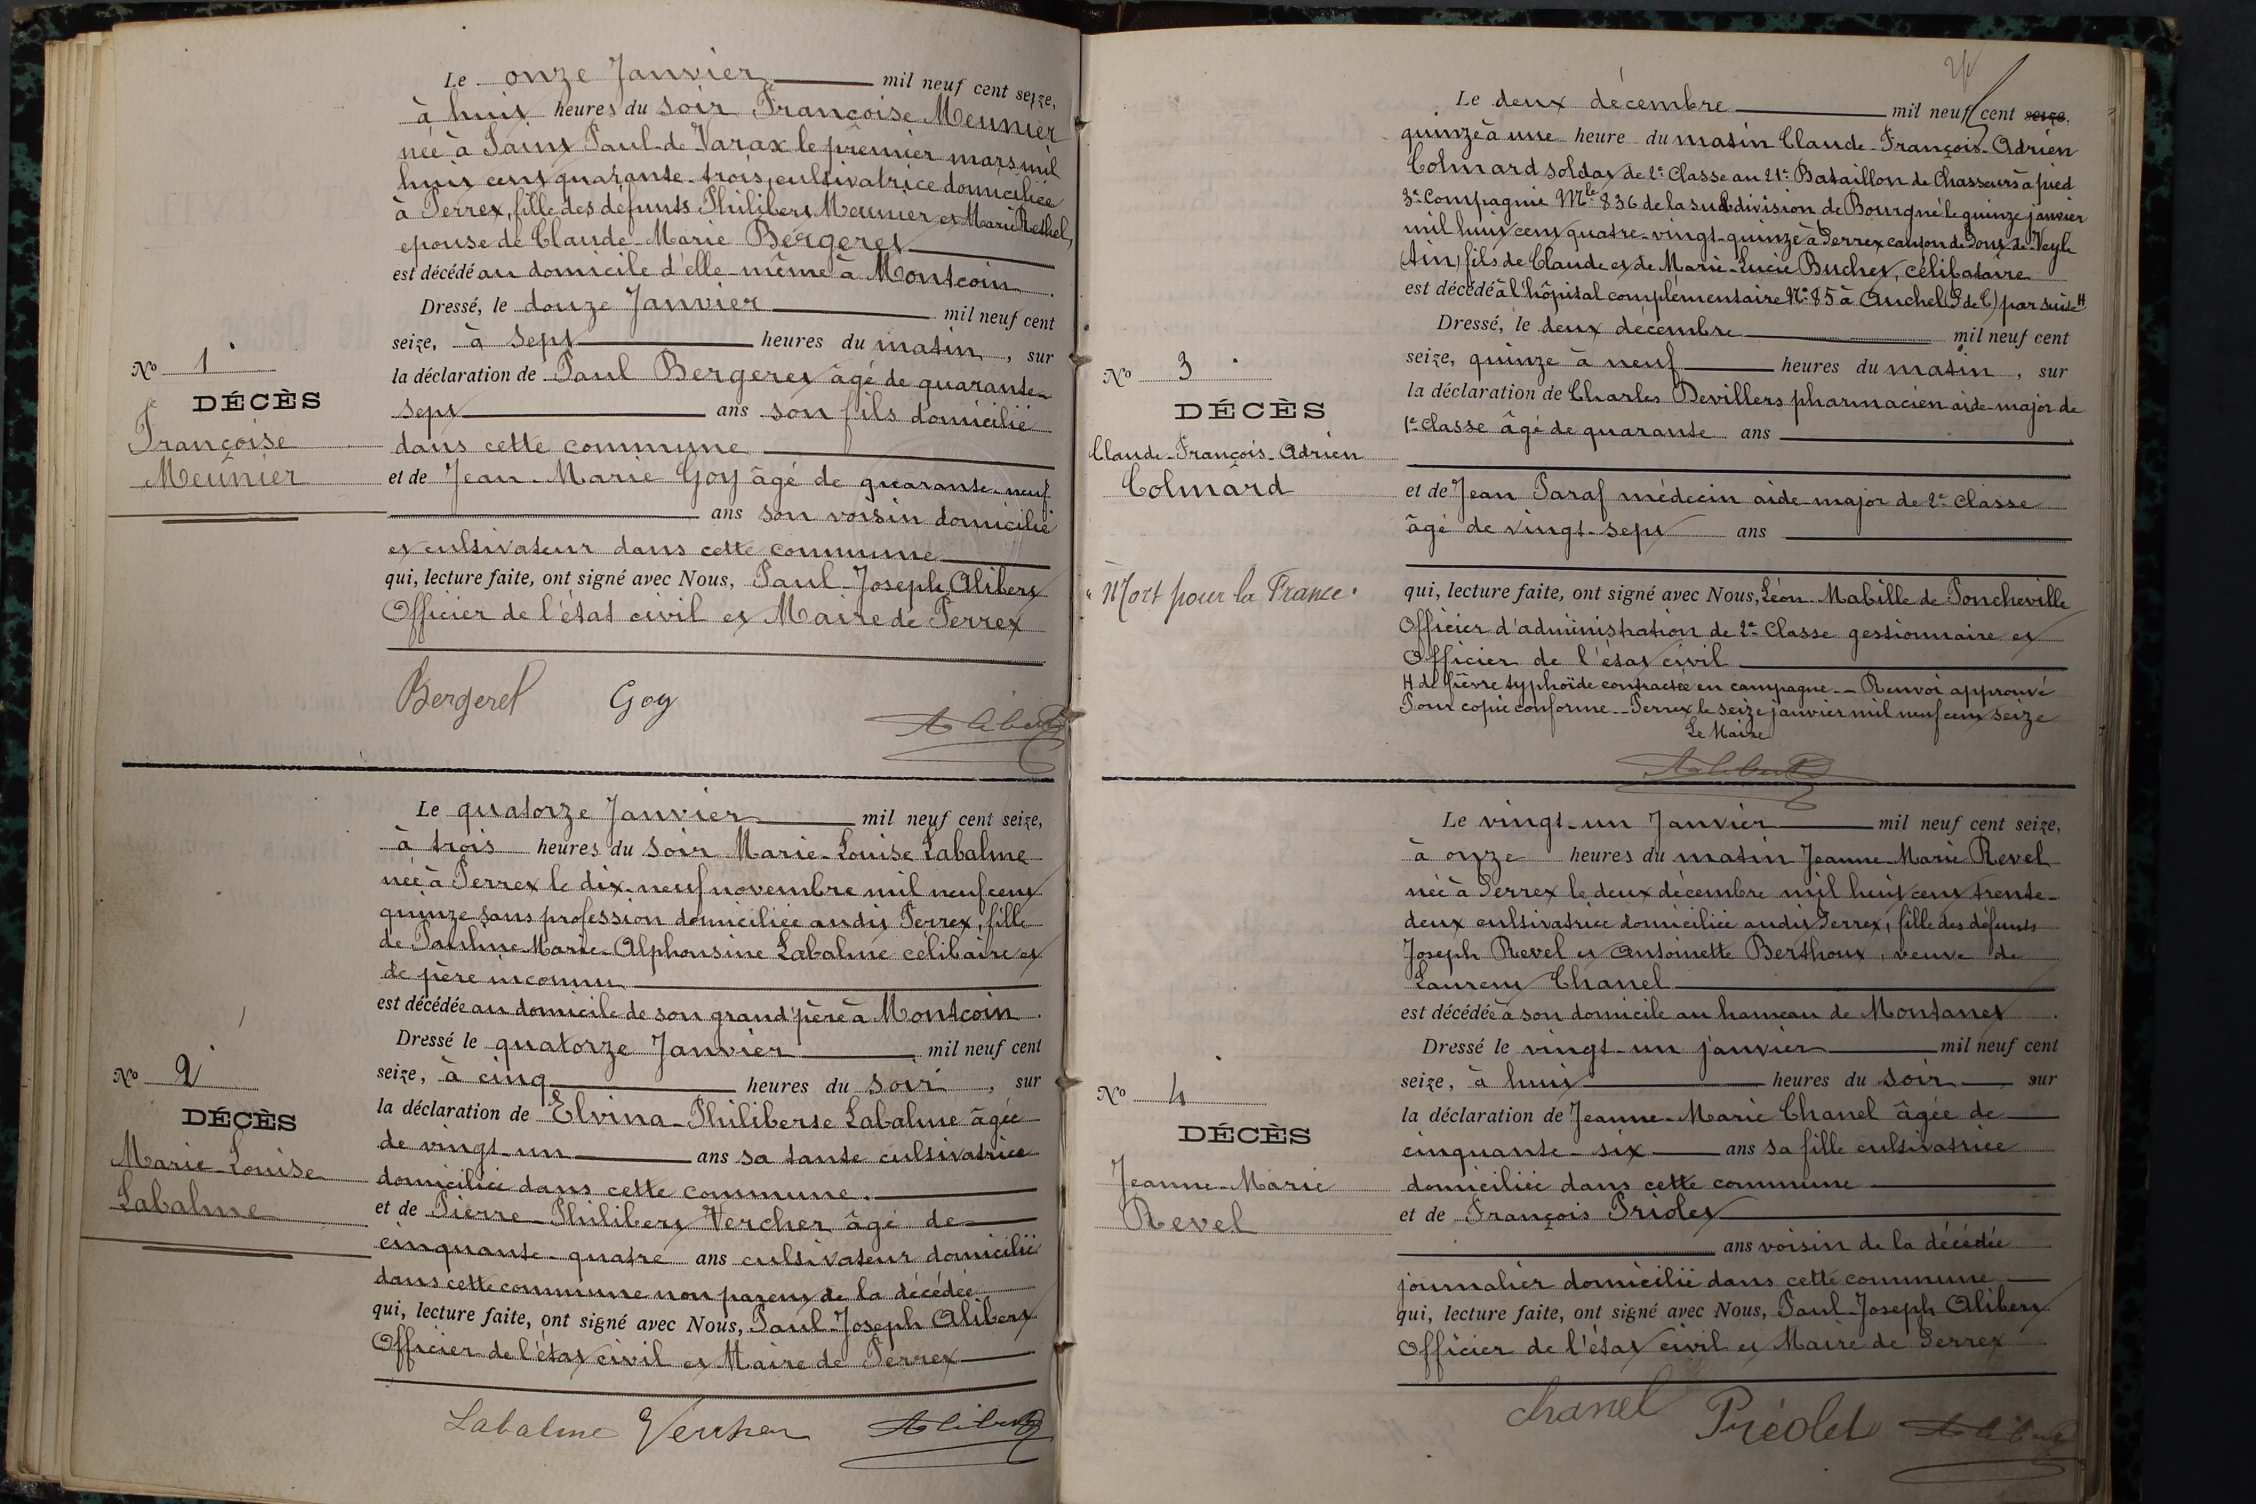 Le onze Janvier mil neuf cent seize,
à huit heures du soir Françoise Meunier
née à Saint Paul-de Varax le premier mars mil
huit cent quarante-trois, cultivatrice domiciliée
à Perrex, fille des défunts Philibert Meunier et Marie Rethel,
epouse de Claude-Marie Bergeret
est décédé au domicile d'elle-même à Montcoin.
Dressé, le douze Janvier mil neuf cent
seize, à Sept heures du matin, sur
la déclaration de Paul Bergeret âgé de quarante-
sept ans son fils domicilié
dans cette commune
et de Jean-Marie Goy âgé de quarante-neuf
ans son voisin domicilié
et cultivateur dans cette commune
qui, lecture faite, ont signé avec Nous, Paul-Joseph Alibert
Officier de l'état civil et Maire de Perrex
Bergeret Goy Alibert
No 1
DÉCÈS
Françoise
Meunier
Le quatorze Janvier mil neuf cent seize,
à trois heures du soir Marie-Louise Labalme
née à Perrex le dix-neuf novembre mil neuf cent
quinze sans profession domiciliée audit Perrex, fille
de Pauline-Marie-Alphonsine Labalme célibaire et
de père inconnu
est décédée au domicile de son grand'père à Montcoin.
Dressé le quatorze Janvier mil neuf cent
seize, à cinq heures du soir, sur
la déclaration de Elvina-Philiberte Labalme âgée
de vingt-un ans sa tante cultivatrice
domiciliée dans cette commune.
et de Pierre-Philibert Vercher âgé de
cinquante-quatre ans cultivateur domicilié
dans cette commune non parent de la décédée
qui, lecture faite, ont signé avec Nous, Paul-Joseph Alibert
Officier de l'état civil et Maire de Perrex
Labalme Vercher Alibert
No 2
DÉCÈS
Marie-Louise
Labalme
Le deux décembre mil neuf cent seize.
quinze à une heure du matin Claude-François-Adrien
Colmard soldat de 2e Classe au 21e Bataillon de Chasseurs à pied
3e Compagnie Mle 836 de la subdivision de Bourg né le quinze janvier
mil huit cent quatre-vingt-quinze à Perrex canton de Pont-de-Veyle
(Ain) fils de Claude et de Marie-Lucie Buchet, célibataire
est décédé à l'hôpital complémentaire No 85 à Auchel (P de C) par suite H
Dressé, le deux décembre mil neuf cent
seize, quinze à neuf heures du matin, sur
la déclaration de Charles Devillers pharmacien aide-major de
1e classe âgé de quarante ans
et de Jean Paraf médecin aide-major de 2e Classe
âgé de vingt-sept ans
qui, lecture faite, ont signé avec Nous, Léon Mabille de Poncheville
Officier d'administration de 2e Classe gestionnaire et
Officier de l'état civil
H de fièvre typhoïde contractée en campagne.- Renvoi approuvé
Pour copie conforme - Perrex le seize janvier mil neuf cent seize
Le Maire
Alibert
No 3
DÉCÈS
Claude-François-Adrien
Colmard
"Mort pour la France"
Le vingt-un Janvier mil neuf cent seize,
à onze heures du matin Jeanne-Marie Revel
née à Perrex le deux décembre mil huit cent trente-
deux cultivatrice domiciliée audit Perrex, fille des défunts
Joseph Revel et Antoinette Berthoux, veuve de
Laurent Chanel
est décédée à son domicile au hameau de Montanet.
Dressé le vingt-un janvier mil neuf cent
seize, à huit heures du soir sur
la déclaration de Jeanne-Marie Chanel âgée de
cinquante-six ans sa fille cultivatrice
domiciliée dans cette commune
et de François Priolet
ans voisin de la décédée
journalier domicilié dans cette commune
qui, lecture faite, ont signé avec Nous, Paul-Joseph Alibert
Officier de l'état civil et Maire de Perrex
Chanel Préolet Alibert
No 4
DÉCÈS
Jeanne-Marie
Revel